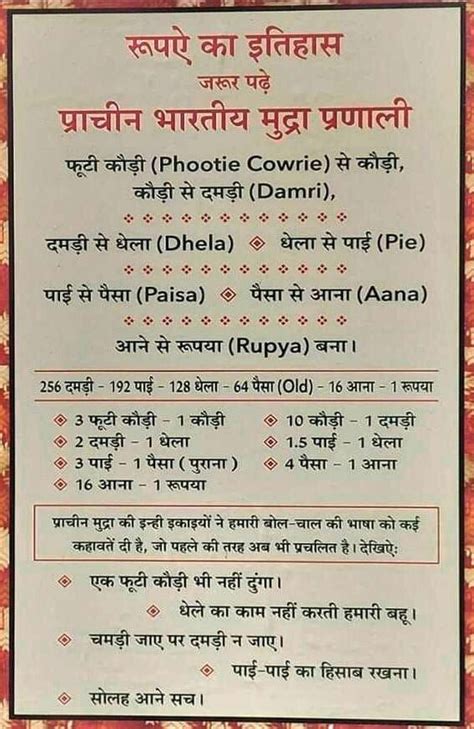 रूपऐ का इतिहास
जरूर पढ़े
प्राचीन भारतीय मुद्रा प्रणाली
फूटी कौड़ी (Phootie Cowrie) से कौड़ी,
कौड़ी से दमड़ी (Damri),
दमड़ी से धेला (Dhela) धेला से पाई (Pie)
पाई से पैसा (Paisa) पैसा से आना (Aana)
आने से रूपया (Rupya) बना।
256 दमड़ी - 192 पाई - 128 धेला - 64 पैसा (Old) - 16 आना - 1 रूपया
3 फूटी कौड़ी - 1 कौड़ी 10 कौड़ी - 1 दमड़ी
2 दमड़ी - 1 धेला 1.5 पाई - 1 धेला
3 पाई - 1 पैसा ( पुराना ) 4 पैसा - 1 आना
16 आना - 1 रूपया
प्राचीन मुद्रा की इन्ही इकाइयों ने हमारी बोल-चाल की भाषा को कई
कहावतें दी है, जो पहले की तरह अब भी प्रचलित है। देखिऐः
एक फूटी कौड़ी भी नहीं दुंगा।
धेले का काम नहीं करती हमारी बहू।
चमड़ी जाए पर दमड़ी न जाए।
पाई-पाई का हिसाब रखना।
सोलह आने सच।